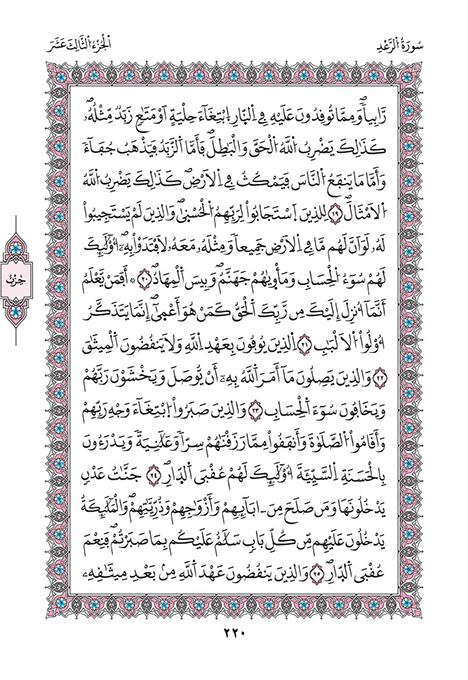 سُورَةُ الرَّعْدِ
الْجُزْءُ الثَّالِثَ عَشَرَ
رَّابِياٗ وَمِمَّا تُوقِدُونَ عَلَيْهِ فِي اِ۬لنّ۪ارِ اِ۪بْتِغَآءَ حِلْيَةٍ اَوْ مَتَٰعٖ زَبَدٞ مِّثْلُهُۥۖ
كَذَٰلِكَ يَضْرِبُ اُ۬للَّهُ اُ۬لْحَقَّ وَالْبَٰطِلَۖ فَأَمَّا اَ۬لزَّبَدُ فَيَذْهَبُ جُفَآءٗ
وَأَمَّا مَا يَنفَعُ اُ۬لنَّاسَ فَيَمْكُثُ فِي اِ۬لَارْضِۖ كَذَٰلِكَ يَضْرِبُ اُ۬للَّهُ
اُ۬لَامْثَالَۖ ١٩ لِلذِينَ اَ۪سْتَجَابُواْ لِرَبِّهِمُ اُ۬لْحُسْن۪يٰۖ وَالذِينَ لَمْ يَسْتَجِيبُواْ
لَهُۥ لَوَ اَنَّ لَهُم مَّا فِي اِ۬لَارْضِ جَمِيعاٗ وَمِثْلَهُۥ مَعَهُۥ لَافْتَدَوْاْ بِهِۦٓۖ أُوْلَٰٓئِكَ
لَهُمْ سُوٓءُ اُ۬لْحِسَابِ وَمَأْو۪يٰهُمْ جَهَنَّمُۖ وَبِيسَ اَ۬لْمِهَادُۖ ٢٠ ۞ أَفَمَنْ يَّعْلَمُ
أَنَّمَآ أُنزِلَ إِلَيْكَ مِن رَّبِّكَ اَ۬لْحَقُّ كَمَنْ هُوَ أَعْم۪يٰٓۖ إِنَّمَا يَتَذَكَّرُ
أُوْلُواْ اُ۬لَالْبَٰبِ ٢١ اِ۬لذِينَ يُوفُونَ بِعَهْدِ اِ۬للَّهِ وَلَا يَنقُضُونَ اَ۬لْمِيثَٰقَ
٢٢ وَالذِينَ يَصِلُونَ مَآ أَمَرَ اَ۬للَّهُ بِهِۦٓ أَنْ يُّوصَلَ وَيَخْشَوْنَ رَبَّهُمْ
وَيَخَافُونَ سُوٓءَ اَ۬لْحِسَابِۖ ٢٣ وَالذِينَ صَبَرُواْ اُ۪بْتِغَآءَ وَجْهِ رَبِّهِمْ
وَأَقَامُواْ اُ۬لصَّلَوٰةَ وَأَنفَقُواْ مِمَّا رَزَقْنَٰهُمْ سِرّاٗ وَعَلَٰنِيَةٗ وَيَدْرَءُونَ
بِالْحَسَنَةِ اِ۬لسَّيِّئَةَ أُوْلَٰٓئِكَ لَهُمْ عُقْبَي اَ۬لدّ۪ارِۖ ٢٤ جَنَّٰتُ عَدْنٖ
يَدْخُلُونَهَا وَمَن صَلَحَ مِنَ اٰبَآئِهِمْ وَأَزْوَٰجِهِمْ وَذُرِّيَّٰتِهِمْۖ وَالْمَلَٰٓئِكَةُ
يَدْخُلُونَ عَلَيْهِم مِّن كُلِّ بَابٖ سَلَٰمٌ عَلَيْكُم بِمَا صَبَرْتُمْۖ فَنِعْمَ
عُقْبَي اَ۬لدّ۪ارِۖ ٢٥ وَالذِينَ يَنقُضُونَ عَهْدَ اَ۬للَّهِ مِنۢ بَعْدِ مِيثَٰقِهِۦ
حِزْبٌ
٢٢٠